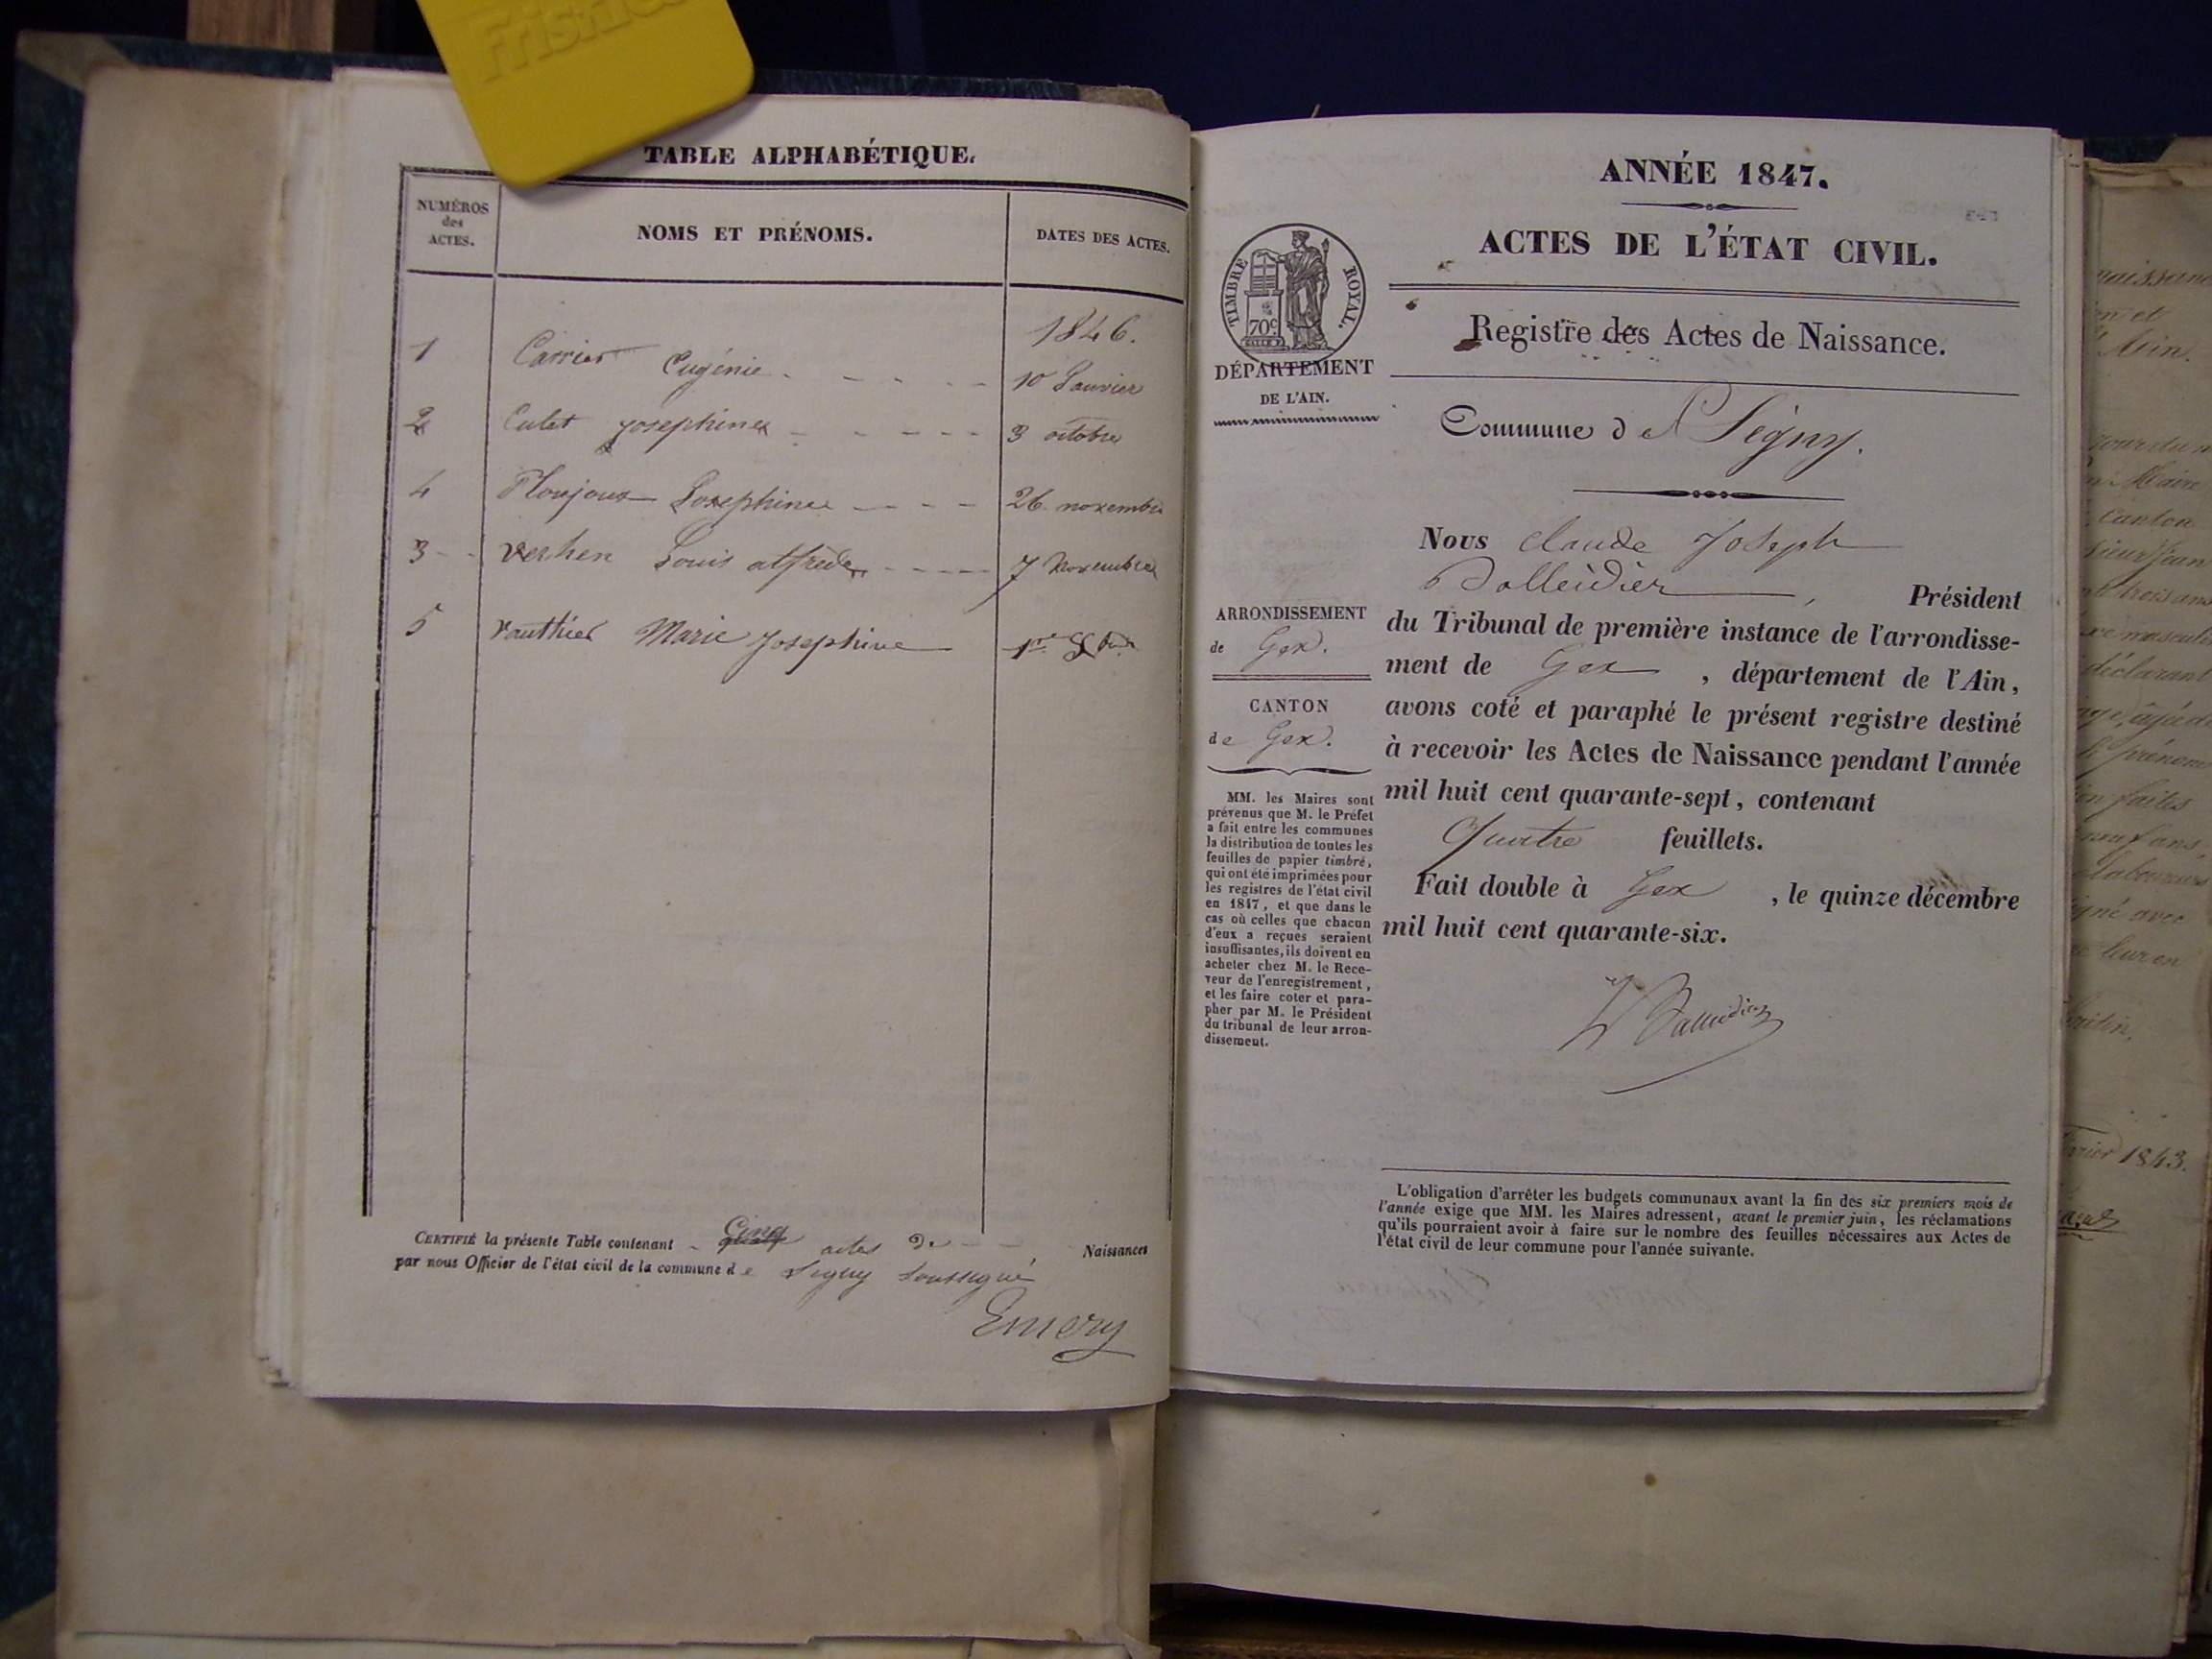 TABLE ALPHABÉTIQUE.
NUMÉROS
des
ACTES.
NOMS ET PRÉNOMS.
DATES DES ACTES.
1846.
1 Carrier Eugénie 10 Janvier
2 Culet Josephine 3 octobre
4 Josephine 26 novembre
3 Louis alfrède 7 Novembre
5 Vauthier Marie Josephine 1er
CERTIFIÉ la présente Table contenant Cinq actes de Naissances
par nous Officier de l'état civil de la commune de Segny Soussigné
Emery
ANNÉE 1847.
ACTES DE L'ÉTAT CIVIL.
TIMBRE ROYAL.
70c
DÉPARTEMENT
DE L'AIN.
Registre des Actes de Naissance.
Commune de Segny.
Nous Claude Joseph
Balleidier, Président
du Tribunal de première instance de l'arrondisse-
ment de Gex, département de l'Ain,
avons coté et paraphé le présent registre destiné
à recevoir les Actes de Naissance pendant l'année
mil huit cent quarante-sept, contenant
Quatre feuillets.
Fait double à Gex, le quinze décembre
mil huit cent quarante-six.
ARRONDISSEMENT
de Gex.
CANTON
de Gex.
MM. les Maires sont
prévenus que M. le Préfet
a fait entre les communes
la distribution de toutes les
feuilles de papier timbré,
qui ont été imprimées pour
les registres de l'état civil
en 1847, et que dans le
cas où celles que chacun
d'eux a reçues seraient
insuffisantes, ils doivent en
acheter chez M. le Rece-
veur de l'enregistrement,
et les faire coter et para-
pher par M. le Président
du tribunal de leur arron-
dissement.
L'obligation d'arrêter les budgets communaux avant la fin des six premiers mois de
l'année exige que MM. les Maires adressent, avant le premier juin, les réclamations
qu'ils pourraient avoir à faire sur le nombre des feuilles nécessaires aux Actes de
l'état civil de leur commune pour l'année suivante.
l'Ain.
Maire
canton
trois ans
déclarant
faites
signé avec
1843.